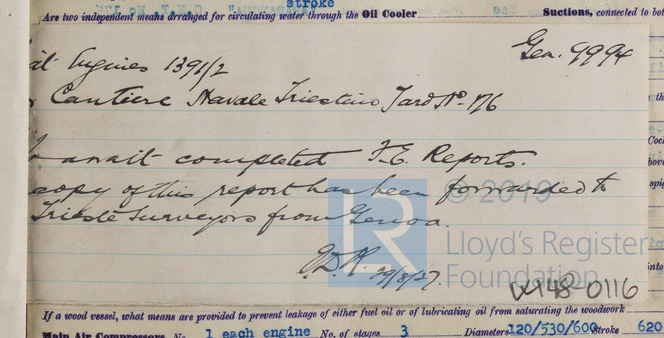 stroke
Are two independent means arranged for circulating water through the Oil Cooler Suctions, connected to bot
Gen. 9994
Engines 1391/2
Cantiere Navale Triestino Yard No. 176
await completed F.E. Reports.
copy of this report has been forwarded to
Trieste Surveyors from Genoa.
29/8/27.
© 2019
LR
Lloyd's Register
Foundation
W148-0116
If a wood vessel, what means are provided to prevent leakage of either fuel oil or of lubricating oil from saturating the woodwork
Main Air Compressors, No. 1 each engine No. of stages 3 Diameters 120/530/600 Stroke 620